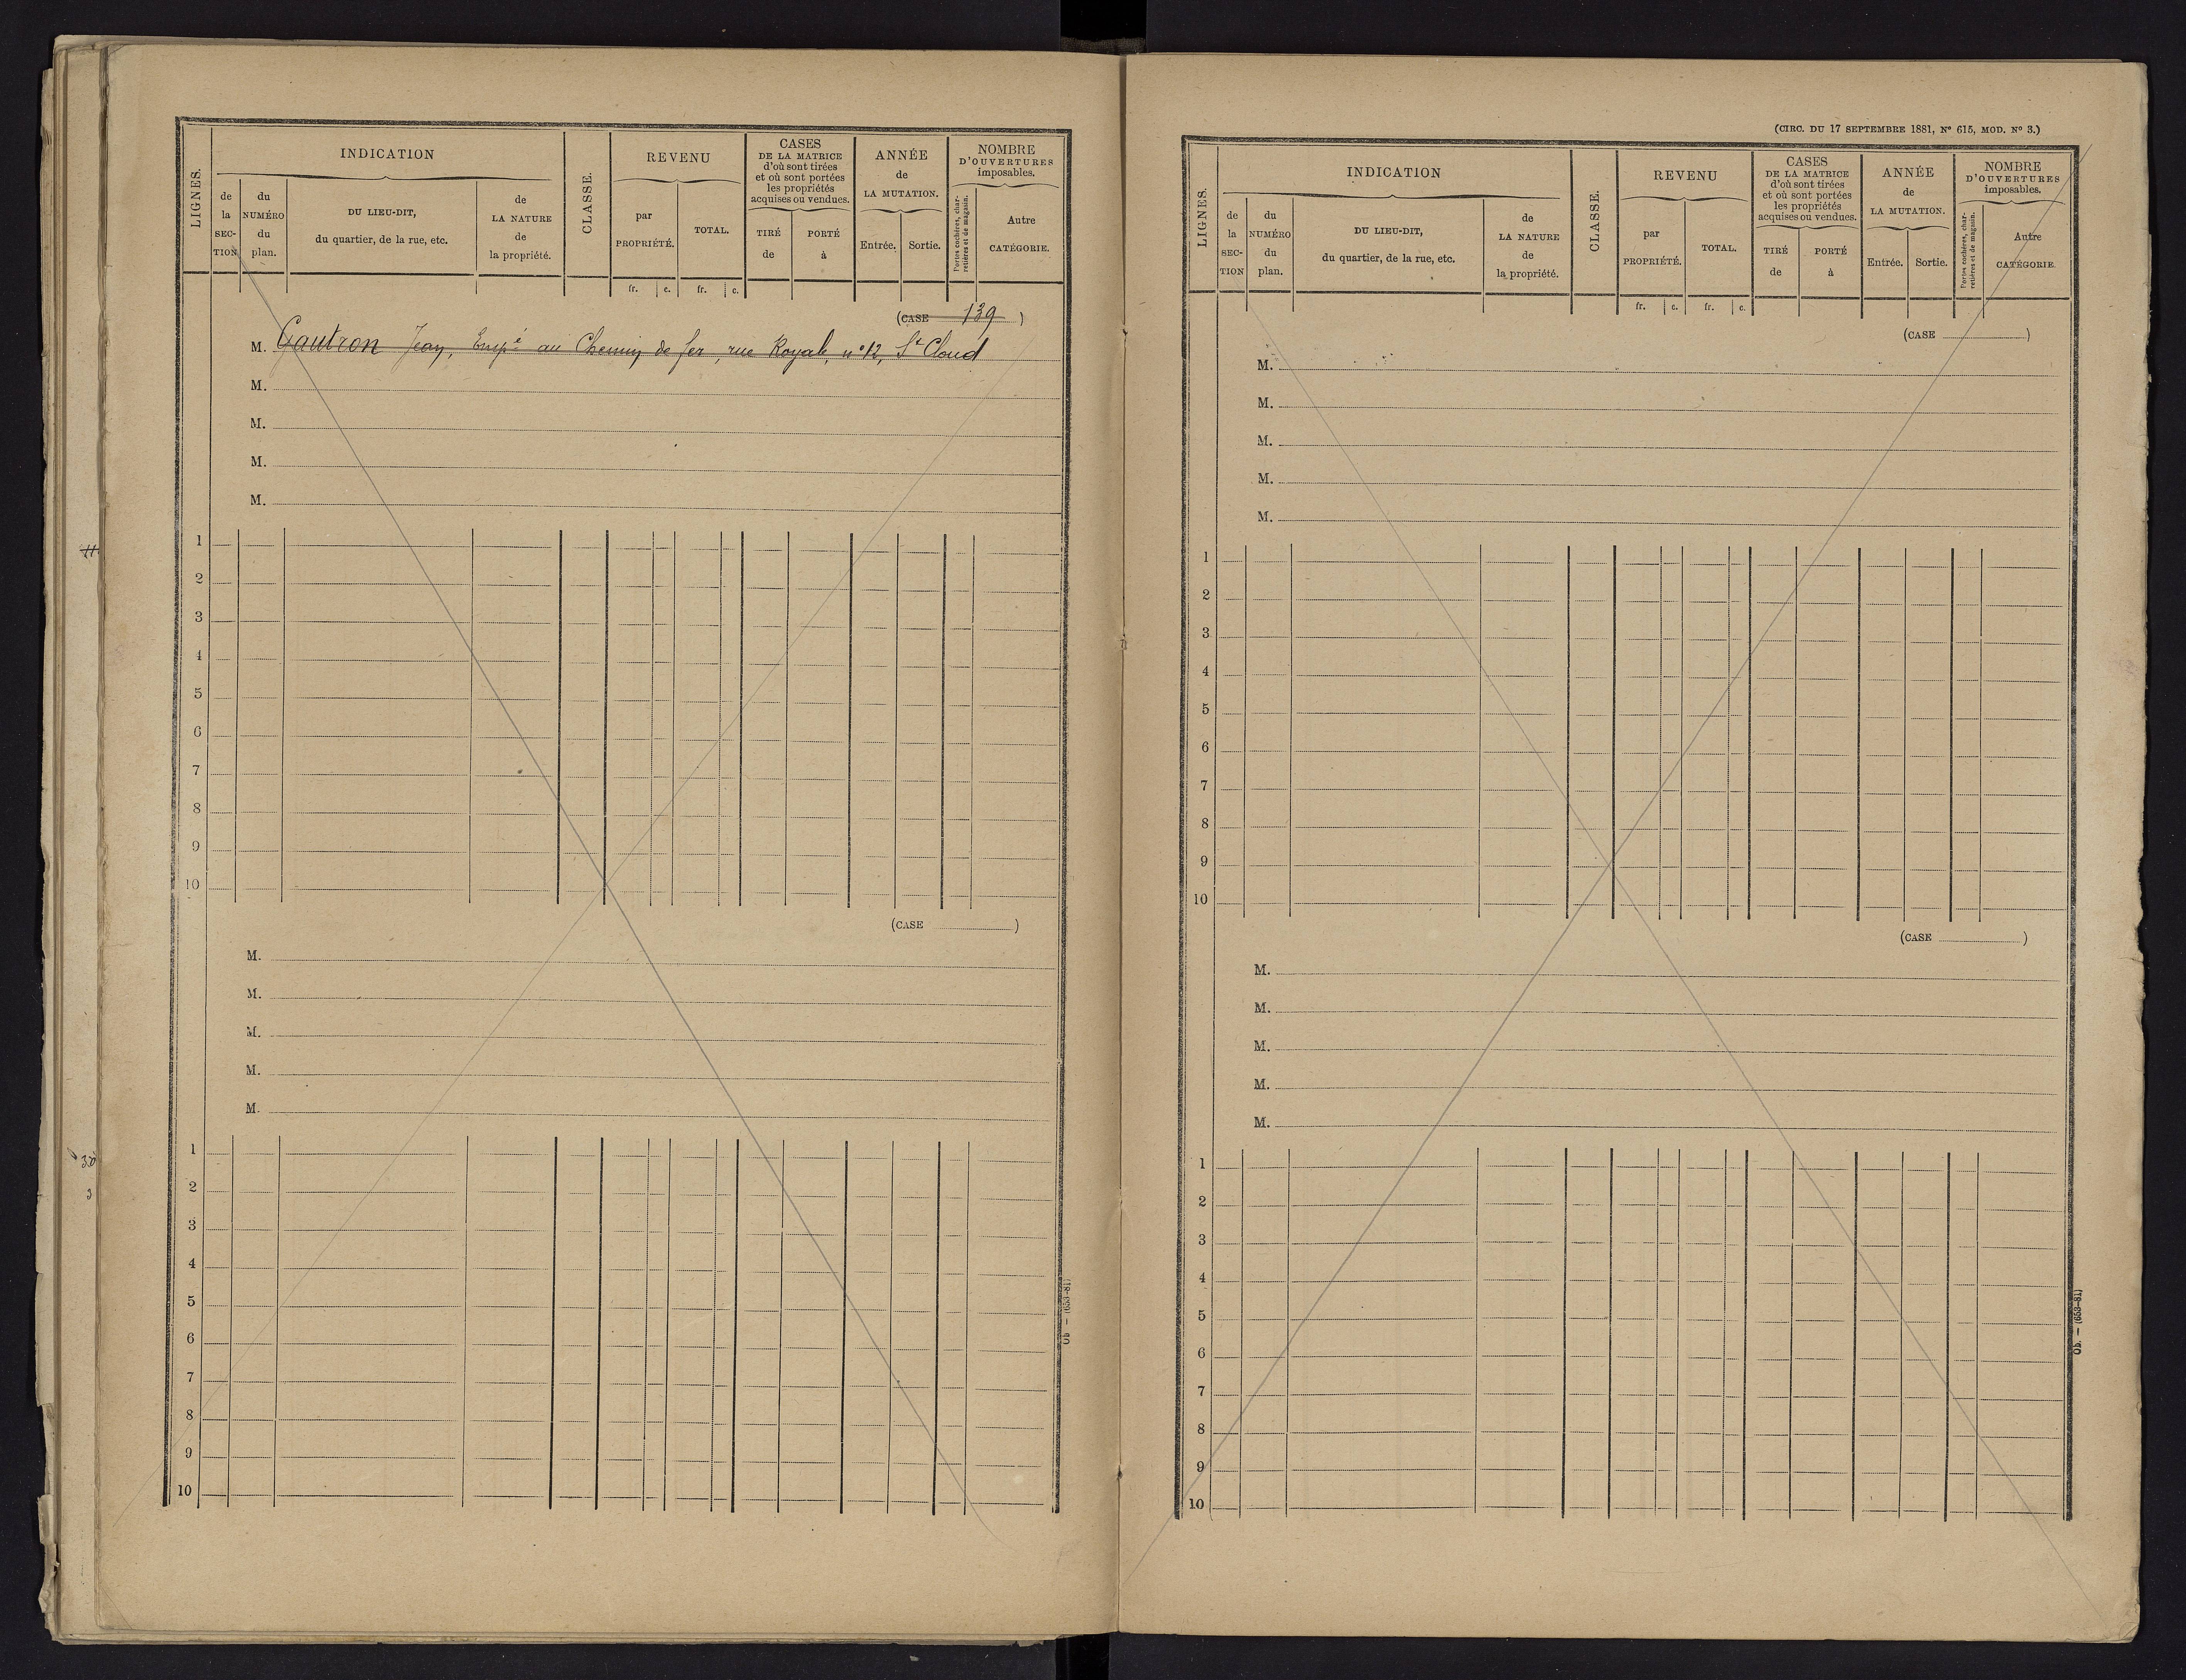 LIGNES.
INDICATION
de la SEC-TION
du NUMÉRO du plan.
DU LIEU-DIT, du quartier, de la rue, etc.
de LA NATURE de la propriété.
CLASSE.
REVENU
par PROPRIÉTÉ.
TOTAL.
CASES
DE LA MATRICE
d'où sont tirées
et où sont portées
les propriétés
acquises ou vendues.
TIRÉ de
PORTÉ à
ANNÉE
de
LA MUTATION.
Entrée.
Sortie.
NOMBRE
D'OUVERTURES
imposables.
Portes cochères, charretières et de magasin.
Autre CATÉGORIE.
fr. c. fr. c.
(CASE 139 )
M. Gautron Jean, Empé au Chemin de fer, rue Royale, n° 12, St Cloud
M.
M.
M.
M.
1
2
3
4
5
6
7
8
9
10
(CASE )
M.
M.
M.
M.
M.
1
2
3
4
5
6
7
8
9
10
Ob. — (653-81)
(CIRC. DU 17 SEPTEMBRE 1881, N° 615, MOD. N° 3.)
LIGNES.
INDICATION
de la SEC-TION
du NUMÉRO du plan.
DU LIEU-DIT, du quartier, de la rue, etc.
de LA NATURE de la propriété.
CLASSE.
REVENU
par PROPRIÉTÉ.
TOTAL.
CASES
DE LA MATRICE
d'où sont tirées
et où sont portées
les propriétés
acquises ou vendues.
TIRÉ de
PORTÉ à
ANNÉE
de
LA MUTATION.
Entrée.
Sortie.
NOMBRE
D'OUVERTURES
imposables.
Portes cochères, charretières et de magasin.
Autre CATÉGORIE.
fr. c. fr. c.
(CASE )
M.
M.
M.
M.
M.
1
2
3
4
5
6
7
8
9
10
(CASE )
M.
M.
M.
M.
M.
1
2
3
4
5
6
7
8
9
10
Ob. — (653-81)